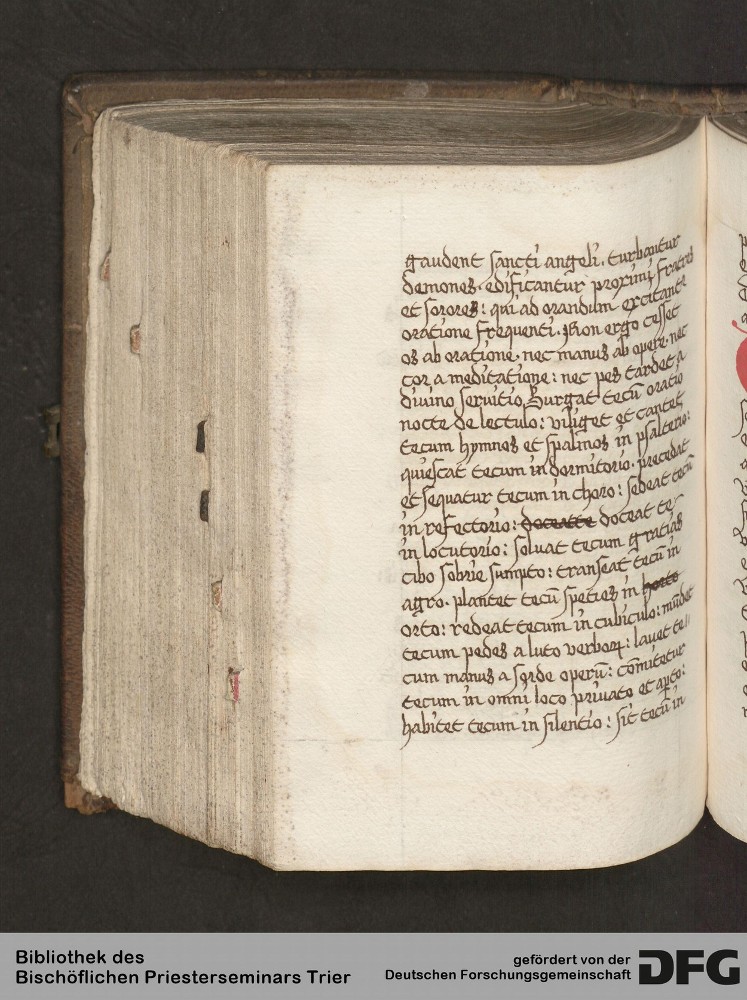 gaudent sancti angeli. turbantur
demones. edificantur proximi, fratres
et sorores: qui ad orandum excitant᷑
oratione frequenti. Non ergo cesset
os ab oratione. nec manus ab opere. nec
cor a meditatione: nec pes tardet a
diuino seruitio. Surgat tecū oratio
nocte de lectulo: uiliget et cantet
tecum hymnos et spalmos in psalterio:
quiescat tecum in dormitorio. precedat
et sequatur tecum in choro: sedeat tecū
in refectorio: doceatte doceat te
in locutorio: soluat tecum gratias
cibo sobrie sumpto: transeat tecū in
agro. plantet tecū species in horto
orto: redeat tecum in cubiculo: mūdet
tecum pedes a luto verboꝝ: lauet te//
cum manus a sorde operū: cōmitetur
tecum in omni loco priuato et aꝑto:
habitet tecum in silentio: sit tecū in
Bibliothek des
Bischöflichen Priesterseminars Trier
gefördert von der
Deutschen Forschungsgemeinschaft
DFG